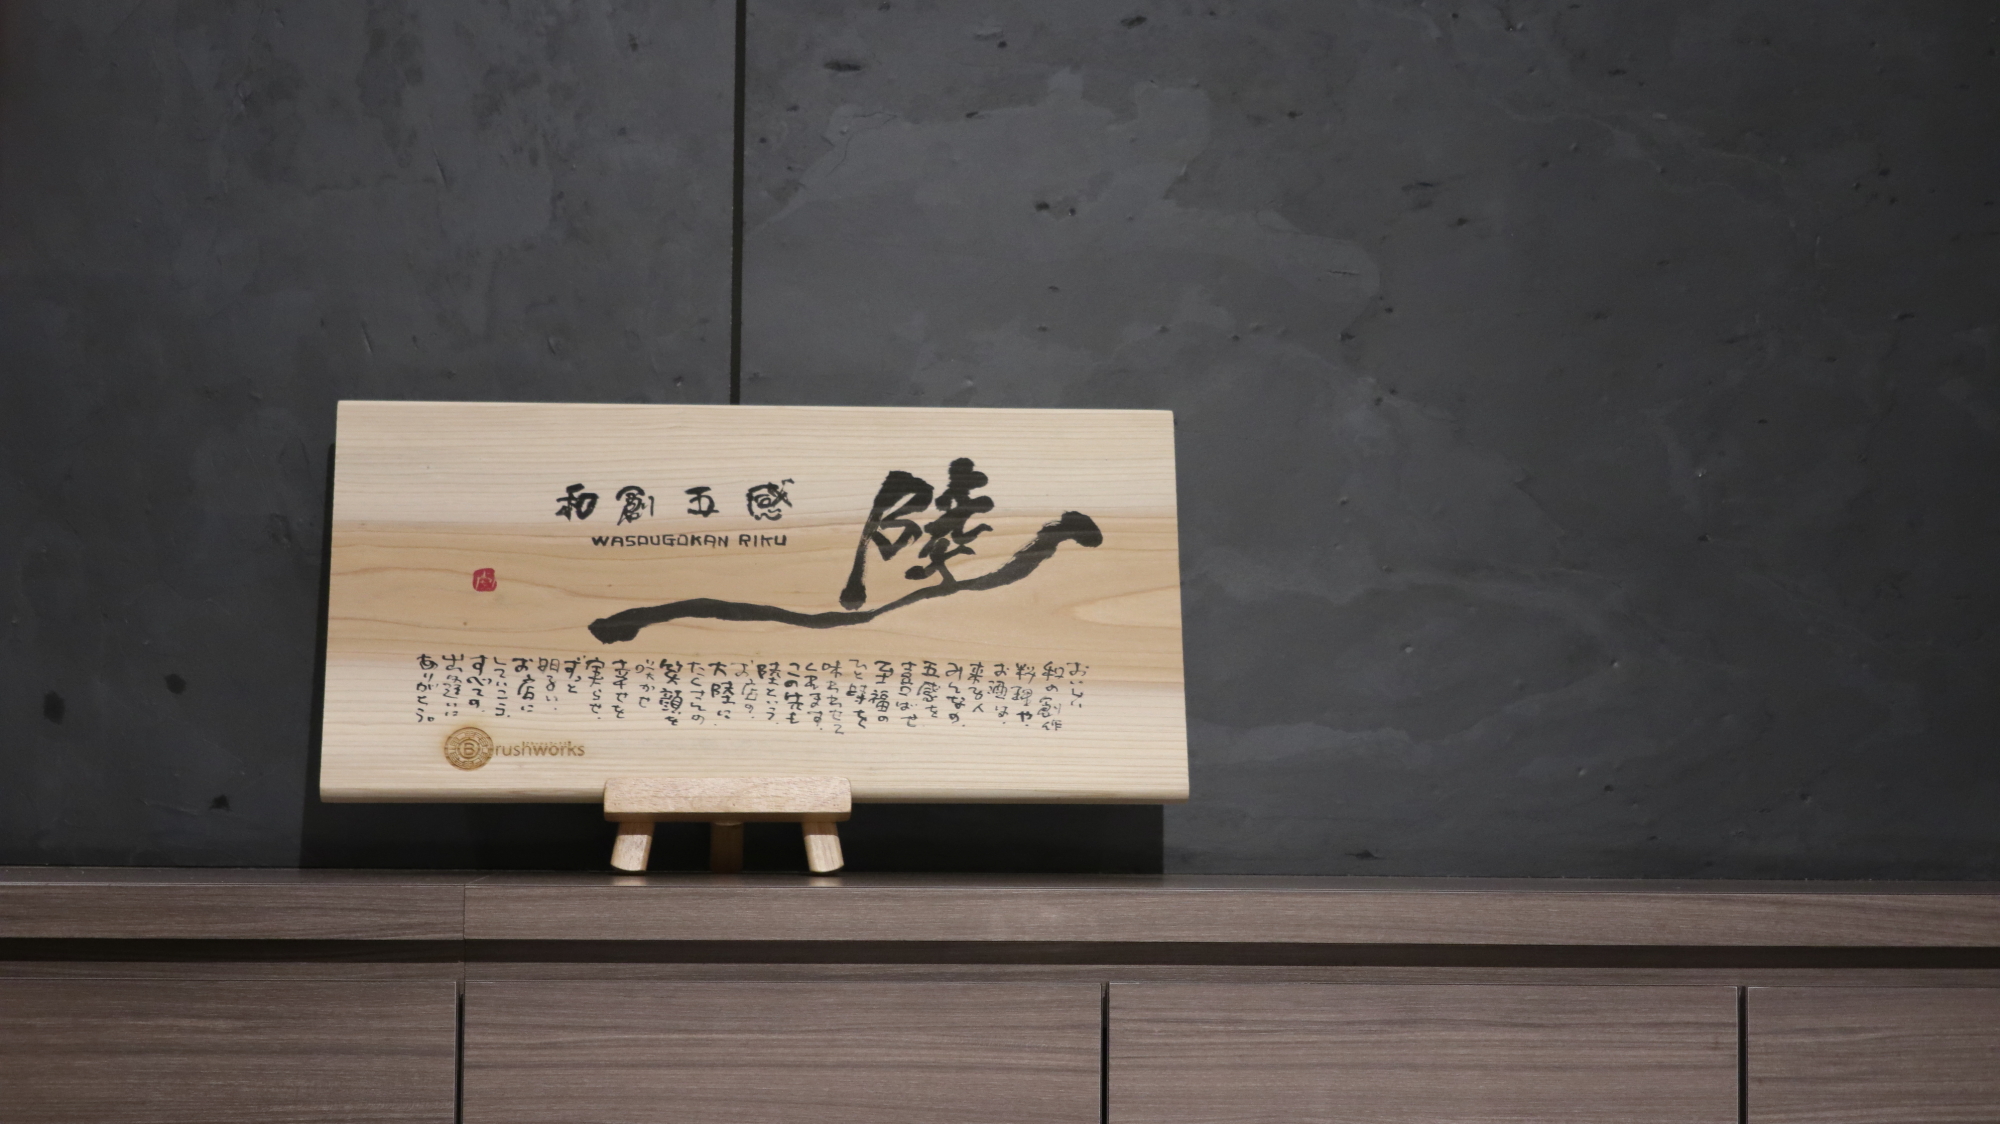 和創五感
WASOUGOKAN RIKU
陸
おいしい
和の創作
料理や、
お酒は、
来る人
みんなの、
五感を
喜ばせ
至福の
ひと時を
味わわせて
くれます。
この地も
陸という、
お店の、
大陸に、
たくさんの
笑顔を
咲かせ
幸せを
実らせ、
ずっと
明るい、
お店に
していこう、
すべての、
出逢いに
ありがとう。
Brushworks